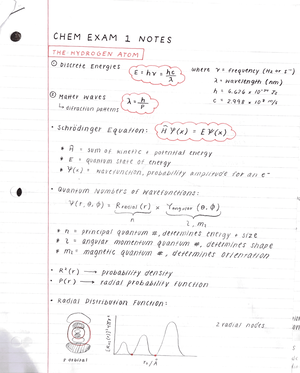 CHEM EXAM 1 NOTES
THE HYDROGEN ATOM
① Discrete Energies E = hν = hc/λ where ν = frequency (Hz or s⁻¹)
λ = wavelength (nm)
h = 6.626 x 10⁻³⁴ Js
c = 2.998 x 10⁸ m/s
② Matter Waves λ = h/p
↳ diffraction patterns
• Schrödinger Equation: ĤΨ(x) = EΨ(x)
* Ĥ = sum of kinetic + potential energy
* E = quantum state of energy
* Ψ(x) = wavefunction, probability amplitude for an e⁻
• Quantum Numbers of Wavefunctions:
Ψ(r, θ, Φ) = Rradial(r) × Yangular(θ, Φ)
n l, ml
* n = principal quantum #, determines energy + size
* l = angular momentum quantum #, determines shape
* ml = magnetic quantum #, determines orientation
• R²(r) → probability density
• P(r) → radial probability function
• Radial Distribution Function:
2 radial nodes